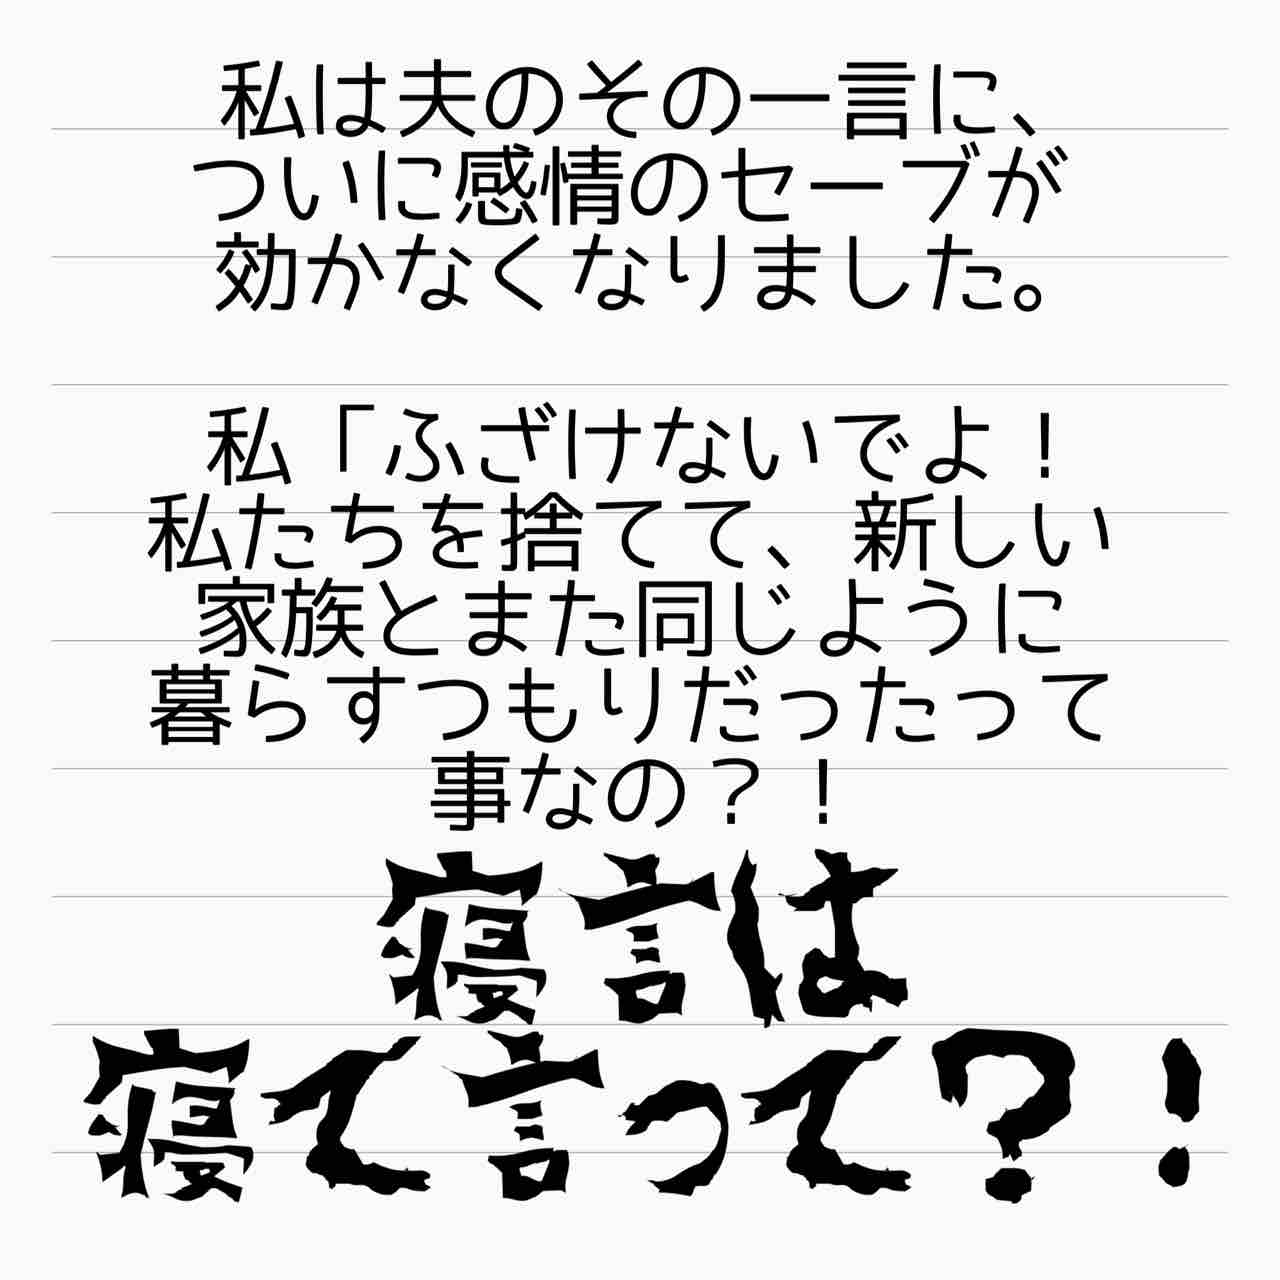 私は夫のその一言に、
ついに感情のセーブが
効かなくなりました。
私「ふざけないでよ！
私たちを捨てて、新しい
家族とまた同じように
暮らすつもりだったって
事なの？！
寝言は
寝て言って？！